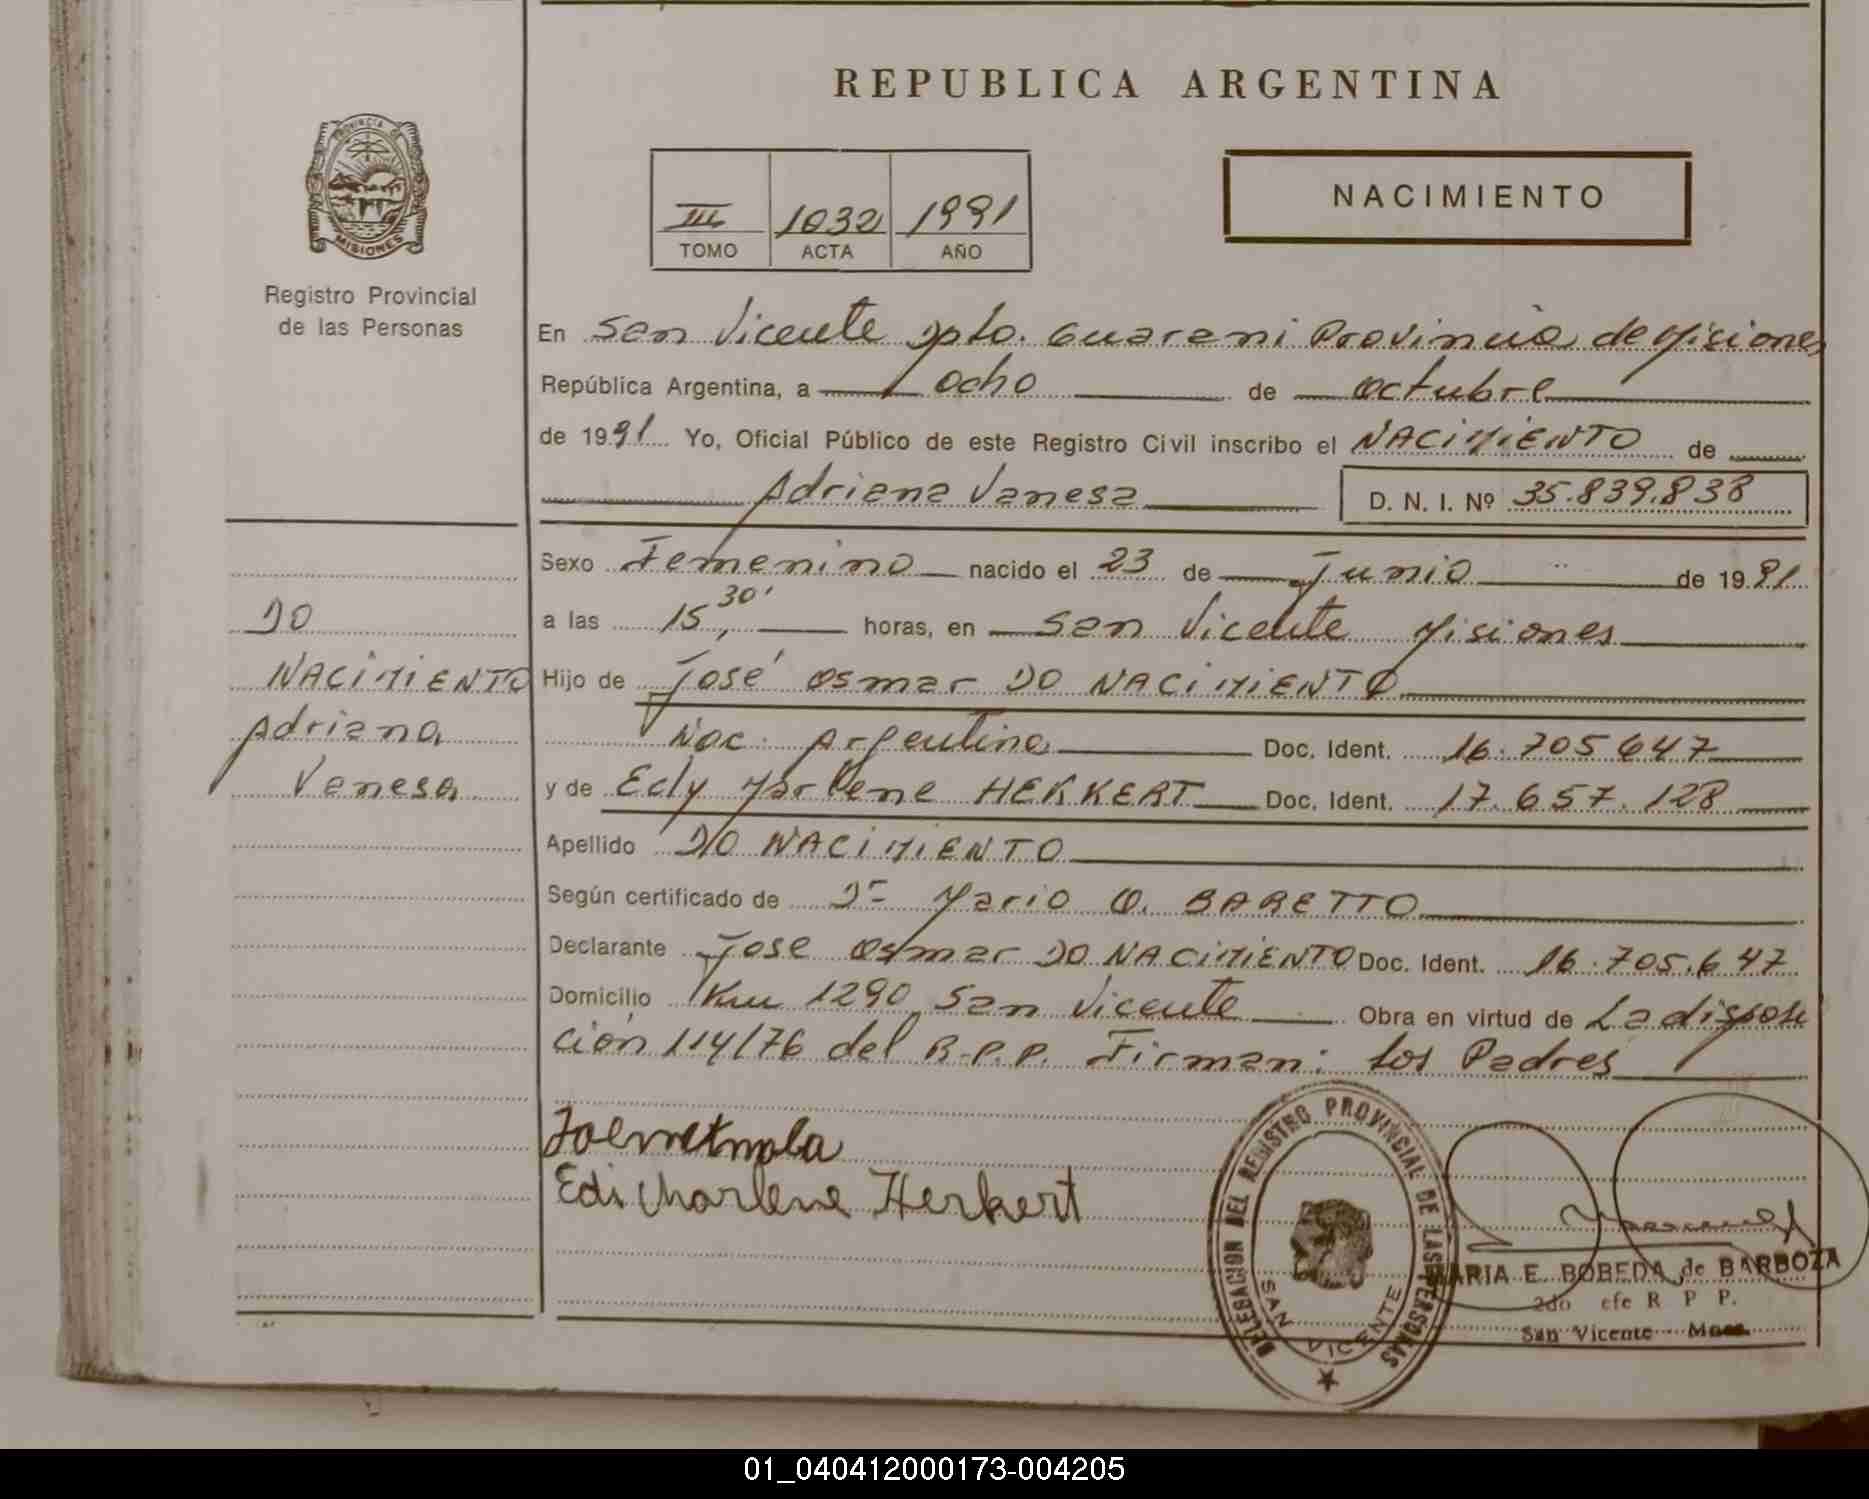 REPUBLICA ARGENTINA
PROVINCIA DE
MISIONES
Registro Provincial
de las Personas
III 1032 1991
TOMO ACTA AÑO
NACIMIENTO
En San Vicente Dpto. Guarani Provincia de Misiones
República Argentina, a ocho de octubre
de 1991 Yo, Oficial Público de este Registro Civil inscribo el NACIMIENTO de
Adriana Vanesa D. N. I. Nº 35.839.838
Sexo Femenino nacido el 23 de Junio de 1991
a las 15,30' horas, en San Vicente Misiones
DO
NACIMIENTO
Adriana
Vanesa
Hijo de José Osmar DO NACIMIENTO
Nac. Argentina Doc. Ident. 16.705647
y de Edy Marlene HERKERT Doc. Ident. 17.657.128
Apellido DO NACIMIENTO
Según certificado de Dr Mario O. BARETTO
Declarante Jose Osmar DO NACIMIENTO Doc. Ident. 16.705.647
Domicilio Km 1290 San Vicente Obra en virtud de La disposi
ción 114/76 del R.P.P. Firman: Los Padres
Edi Marlene Herkert
DELEGACION DEL REGISTRO PROVINCIAL DE LAS PERSONAS
SAN VICENTE
MARIA E. BOBEDA de BARBOZA
2do efe R P P.
San Vicente Mnes.
01_040412000173-004205